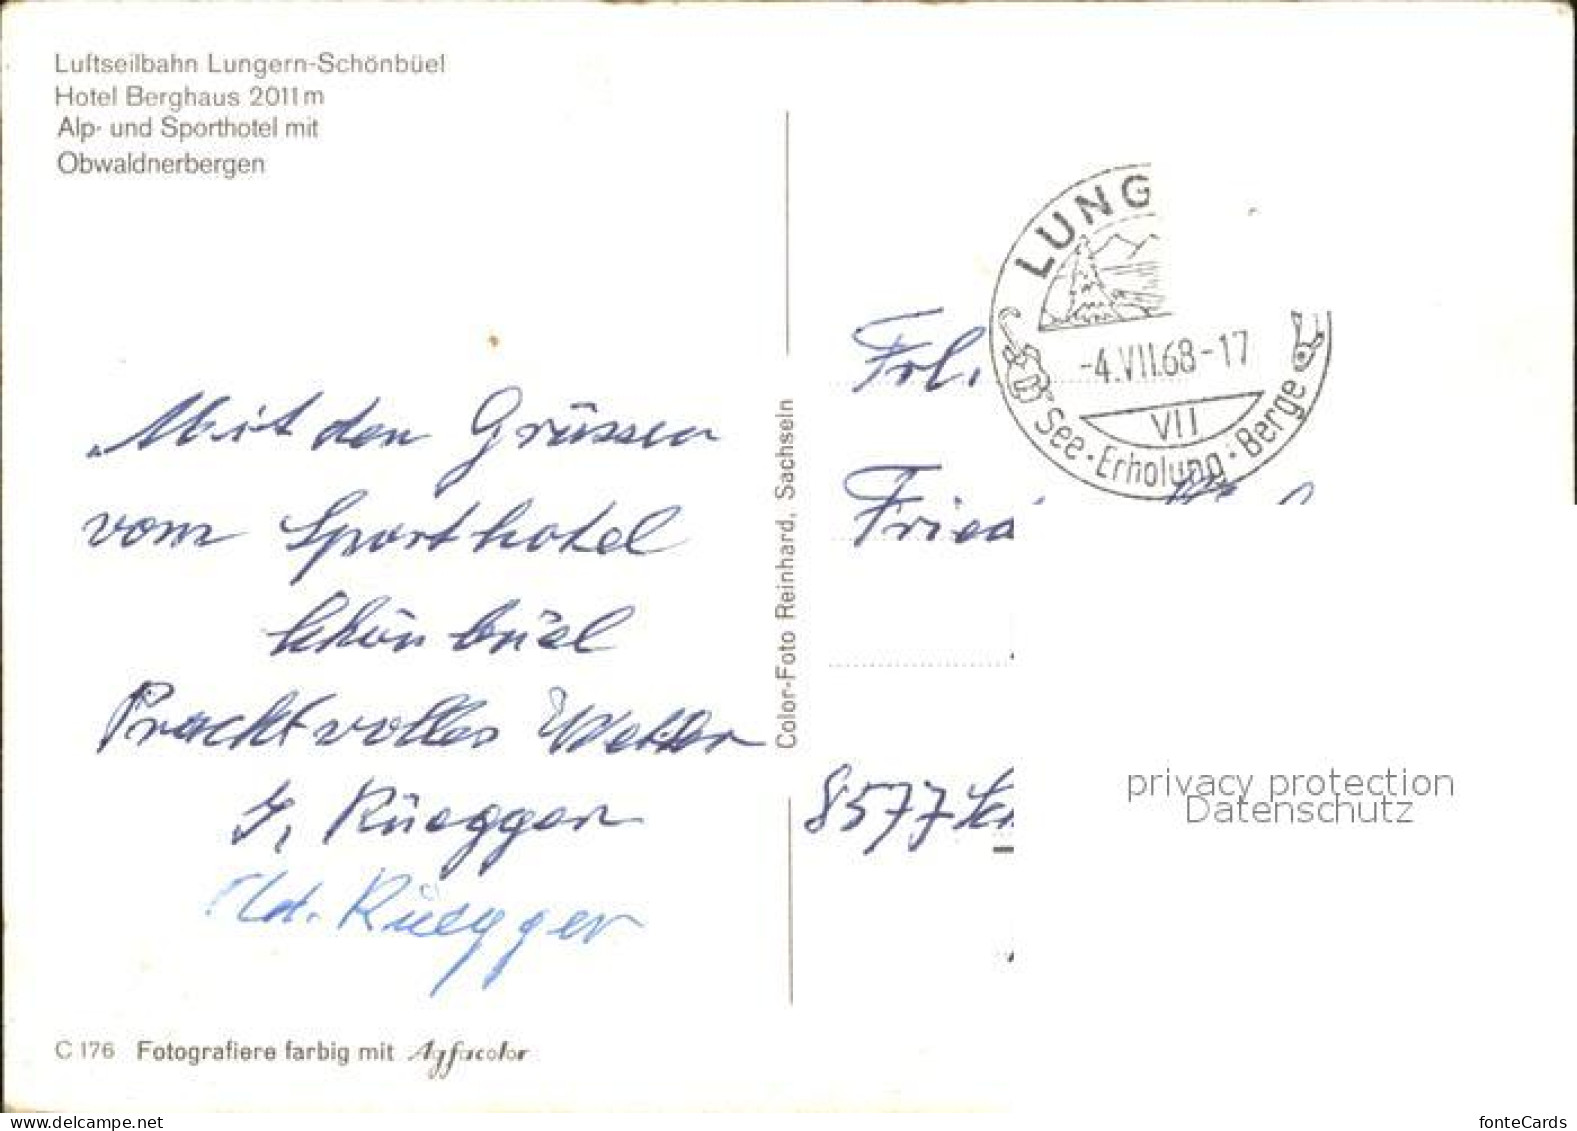 Luftseilbahn Lungern-Schönbüel
Hotel Berghaus 2011m
Alp- und Sporthotel mit
Obwaldnerbergen
Mit den Grüssen
vom Sporthotel
Schönbüel
Prachtvolles Wetter
Rüegger
Rüegger
C 176 Fotografiere farbig mit Agfacolor
Color-Foto Reinhard, Sachseln
LUNG
-4.VII.68-17
VII
See · Erholung · Berge
Frl.
8577
privacy protection
Datenschutz
fonteCards